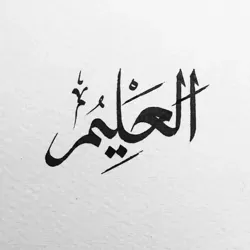 العَلِيمُ